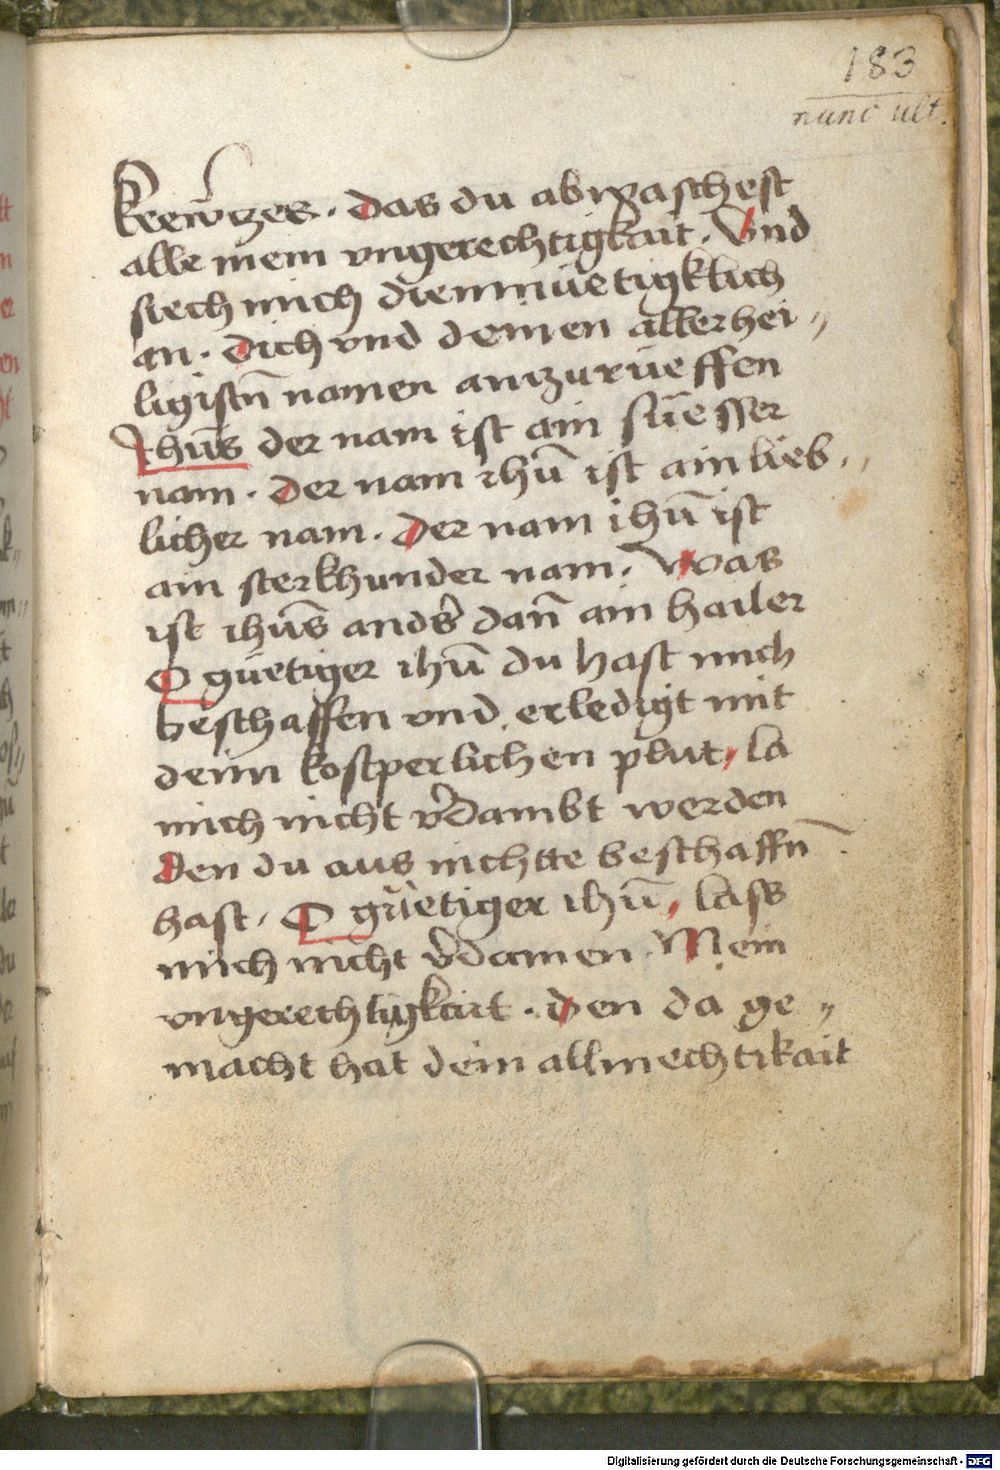 183
nunc ult.
krewtzes. das du abwaschest
alle mein vngerechtigkait. Vnd
siech mich diemüetigklich
an. dich vnd deinen allerhei„
ligistn̄ namen anzurüeffen
Jhūs der nam ist ain süesser
nam. der nam ihū ist ain lieb„
licher nam. Der nam ihū ist
ain sterkhunder nam. Was
ist ihūs anders dan̄ ain hailer
O güetiger ihū du hast mich
beschaffen vnd erledigt mit
deim kostperlichen plut, la
mich nicht v̉dambt werden
den du aus nichtte beschaffn̄
hast. O güetiger ihū, lass
mich nicht v̉damen. Mein
vngerechtigkait. den da ge„
macht hat dein allmechtikait
Digitalisierung gefördert durch die Deutsche Forschungsgemeinschaft - DFG